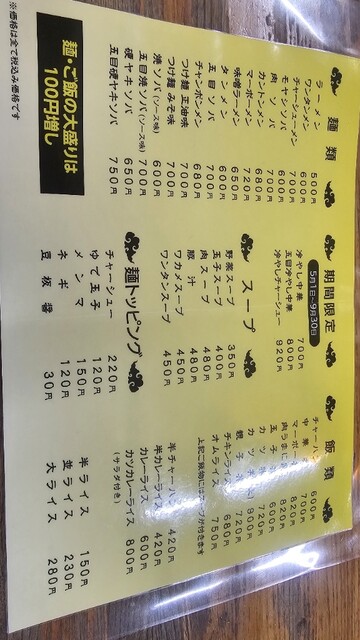 麺類
ラーメン 500円
ワンタンメン 600円
チャーシューメン 700円
モヤシソバ 600円
肉ソバ 700円
カントンメン 680円
マーボーメン 720円
味噌ラーメン
タンメン 600円
五目ソバ 700円
チャンポンメン 680円
つけ麺 正油味 700円
つけ麺 みそ味 700円
焼ソバ(ソース味) 600円
五目焼ソバ(ソース味) 700円
硬ヤキソバ 650円
五目硬ヤキソバ 750円
麺・ご飯の大盛りは
100円増し
※価格は全て税込み価格です
期間限定
5月1日〜9月30日
冷やし中華 700円
五目冷やし中華 800円
冷やしチャーシュー 920円
スープ
野菜スープ 350円
玉子スープ 400円
肉スープ 480円
豚汁 480円
ワカメスープ 450円
ワンタンスープ 450円
麺トッピング
チャーシュー 220円
ゆで玉子 120円
メンマ 150円
ネギ 110円
豆板醤 30円
飯類
チャーハン 650円
中華 700円
マーボー 820円
肉うまに 820円
玉子 600円
カツ
親子
チキンライス 680円
オムライス 750円
上記ご飯物にはスープが付きます
半チャーハン 420円
半カレーライス 420円
カレーライス 600円
カツカレーライス 800円
(サラダ付き)
半ライス 150円
並ライス 230円
大ライス 280円